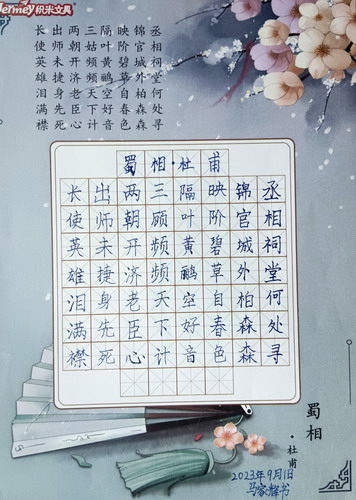 Jermey积米文具
丞相祠堂何处寻
锦官城外柏森森
映阶碧草自春色
隔叶黄鹂空好音
三顾频频天下计
两朝开济老臣心
出师未捷身先死
长使英雄泪满襟
蜀相·杜甫
丞相祠堂何处寻
锦官城外柏森森
映阶碧草自春色
隔叶黄鹂空好音
三顾频频天下计
两朝开济老臣心
出师未捷身先死
长使英雄泪满襟
蜀相
·杜甫
2023年9月1日
马家辉书